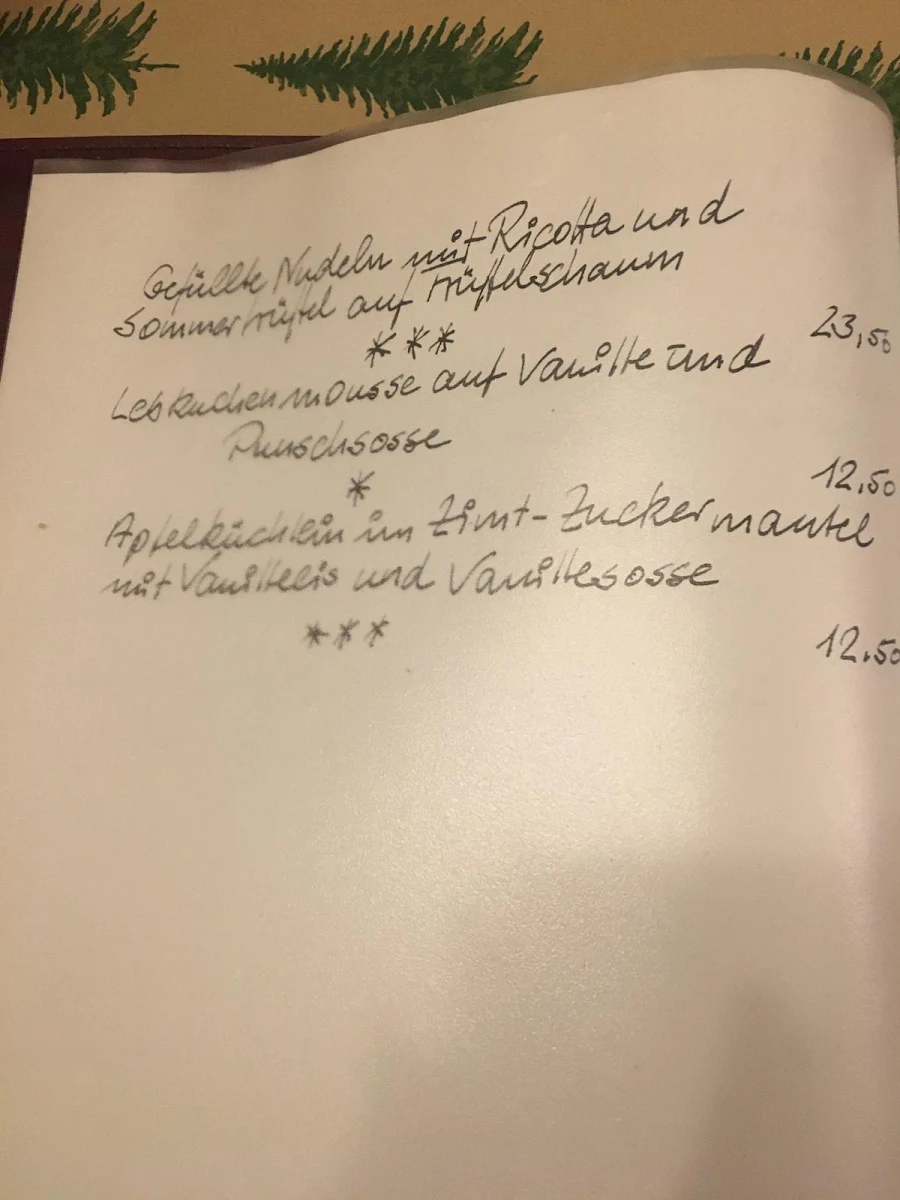 Gefüllte Nudeln mit Ricotta und
Sommertrüffel auf Trüffelschaum
23,50
***
Lebkuchenmousse auf Vanille und
Punschsosse
12,50
*
Apfelküchlein im Zimt-Zuckermantel
mit Vanilleeis und Vanillesosse
12,50
***